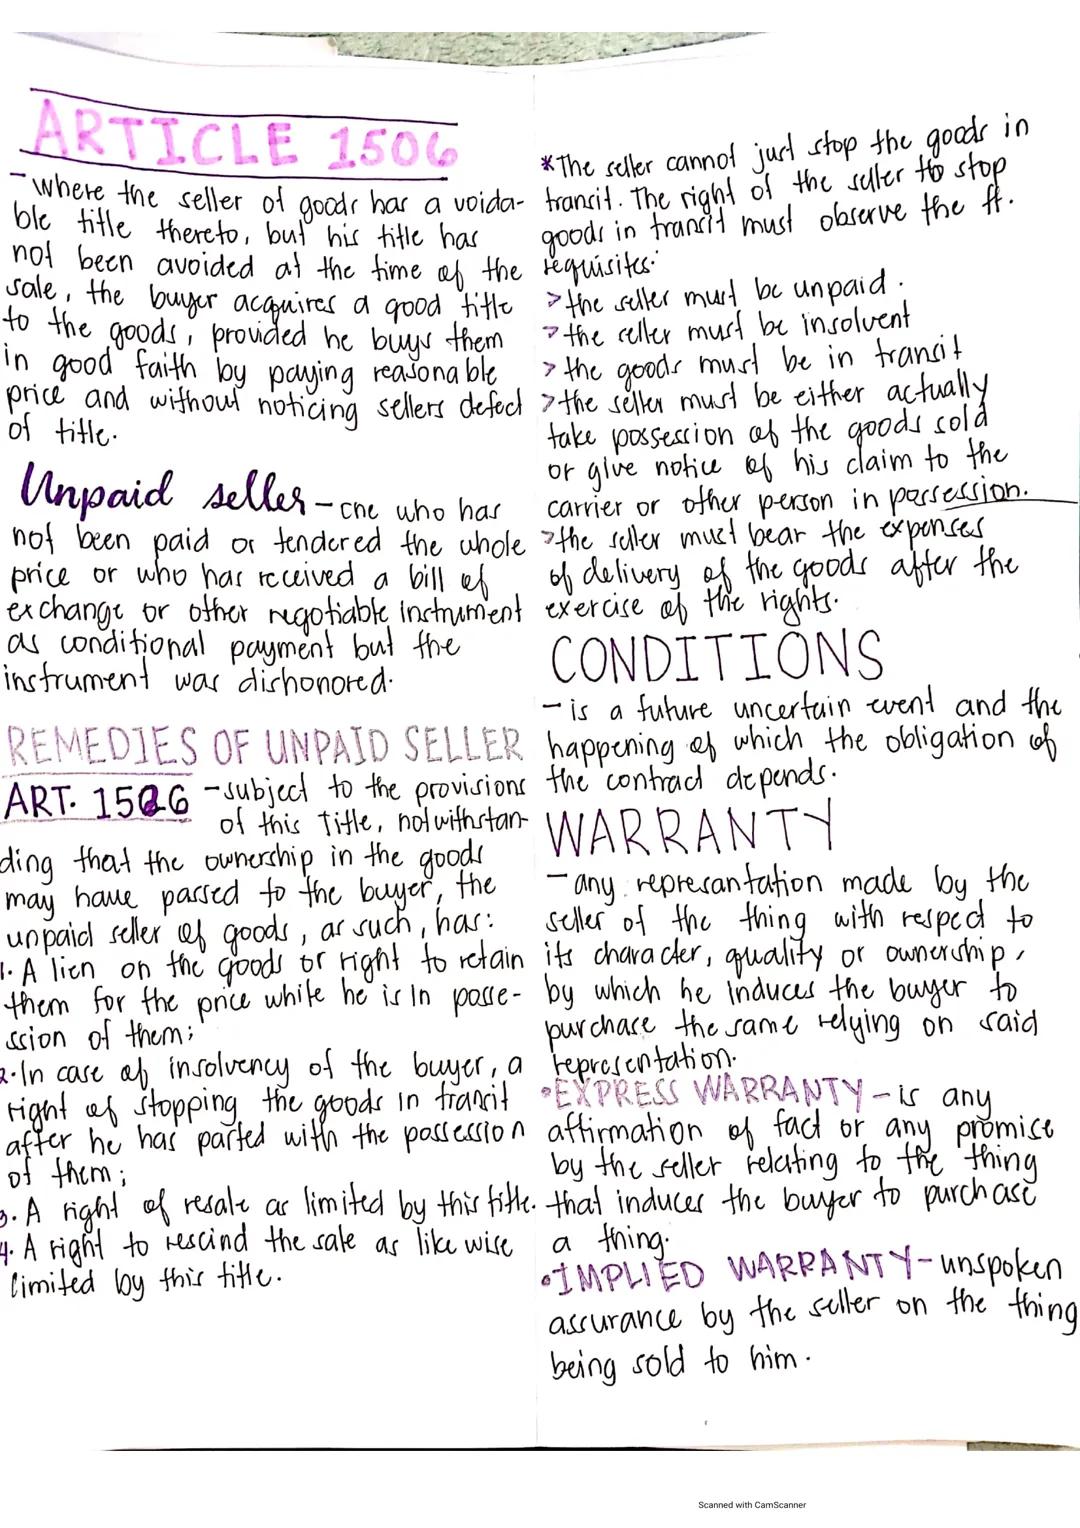 ARTICLE 1506
- where the seller of goods has a voida-
ble title thereto, but his title has
not been avoided at the time of the
sale, the buyer acquires a good title
to the goods, provided he buys them
in good faith by paying reasonable
price and without noticing sellers defect
of title.
Unpaid seller - one who has
not been paid or tendered the whole
price or who has received a bill of
exchange or other negotiable instrument
as conditional payment but the
instrument was dishonored.
REMEDIES OF UNPAID SELLER
ART. 1526 - subject to the provisions
of this Title, notwithstan-
ding that the ownership in the goods
may have passed to the buyer, the
unpaid seller of goods, as such, has:
1. A lien on the goods or right to retain
them for the price while he is in posse-
ssion of them;
2. In case of insolvency of the buyer, a
right of stopping the goods in transit
after he has parted with the possession
of them;
3. A right of resale as limited by this title.
4. A right to rescind the sale as likewise
limited by this title.
*The seller cannot just stop the goods in
transit. The right of the seller to stop
goods in transit must observe the ff.
requisites:
> the seller must be unpaid.
> the seller must be insolvent
> the goods must be in transit
> the seller must be either actually
take possession of the goods sold
or give notice of his claim to the
carrier or other person in possession.
> the seller must bear the expenses
of delivery of the goods after the
exercise of the rights.
CONDITIONS
- is a future uncertain event and the
happening of which the obligation of
the contract depends.
WARRANTY
- any represantation made by the
seller of the thing with respect to
its character, quality or ownership,
by which he induces the buyer to
purchase the same relying on said
representation.
•EXPRESS WARRANTY - is any
affirmation of fact or any promise
by the seller relating to the thing
that induces the buyer to purchase
a thing.
•IMPLIED WARRANTY - unspoken
assurance by the seller on the thing
being sold to him.
Scanned with CamScanner